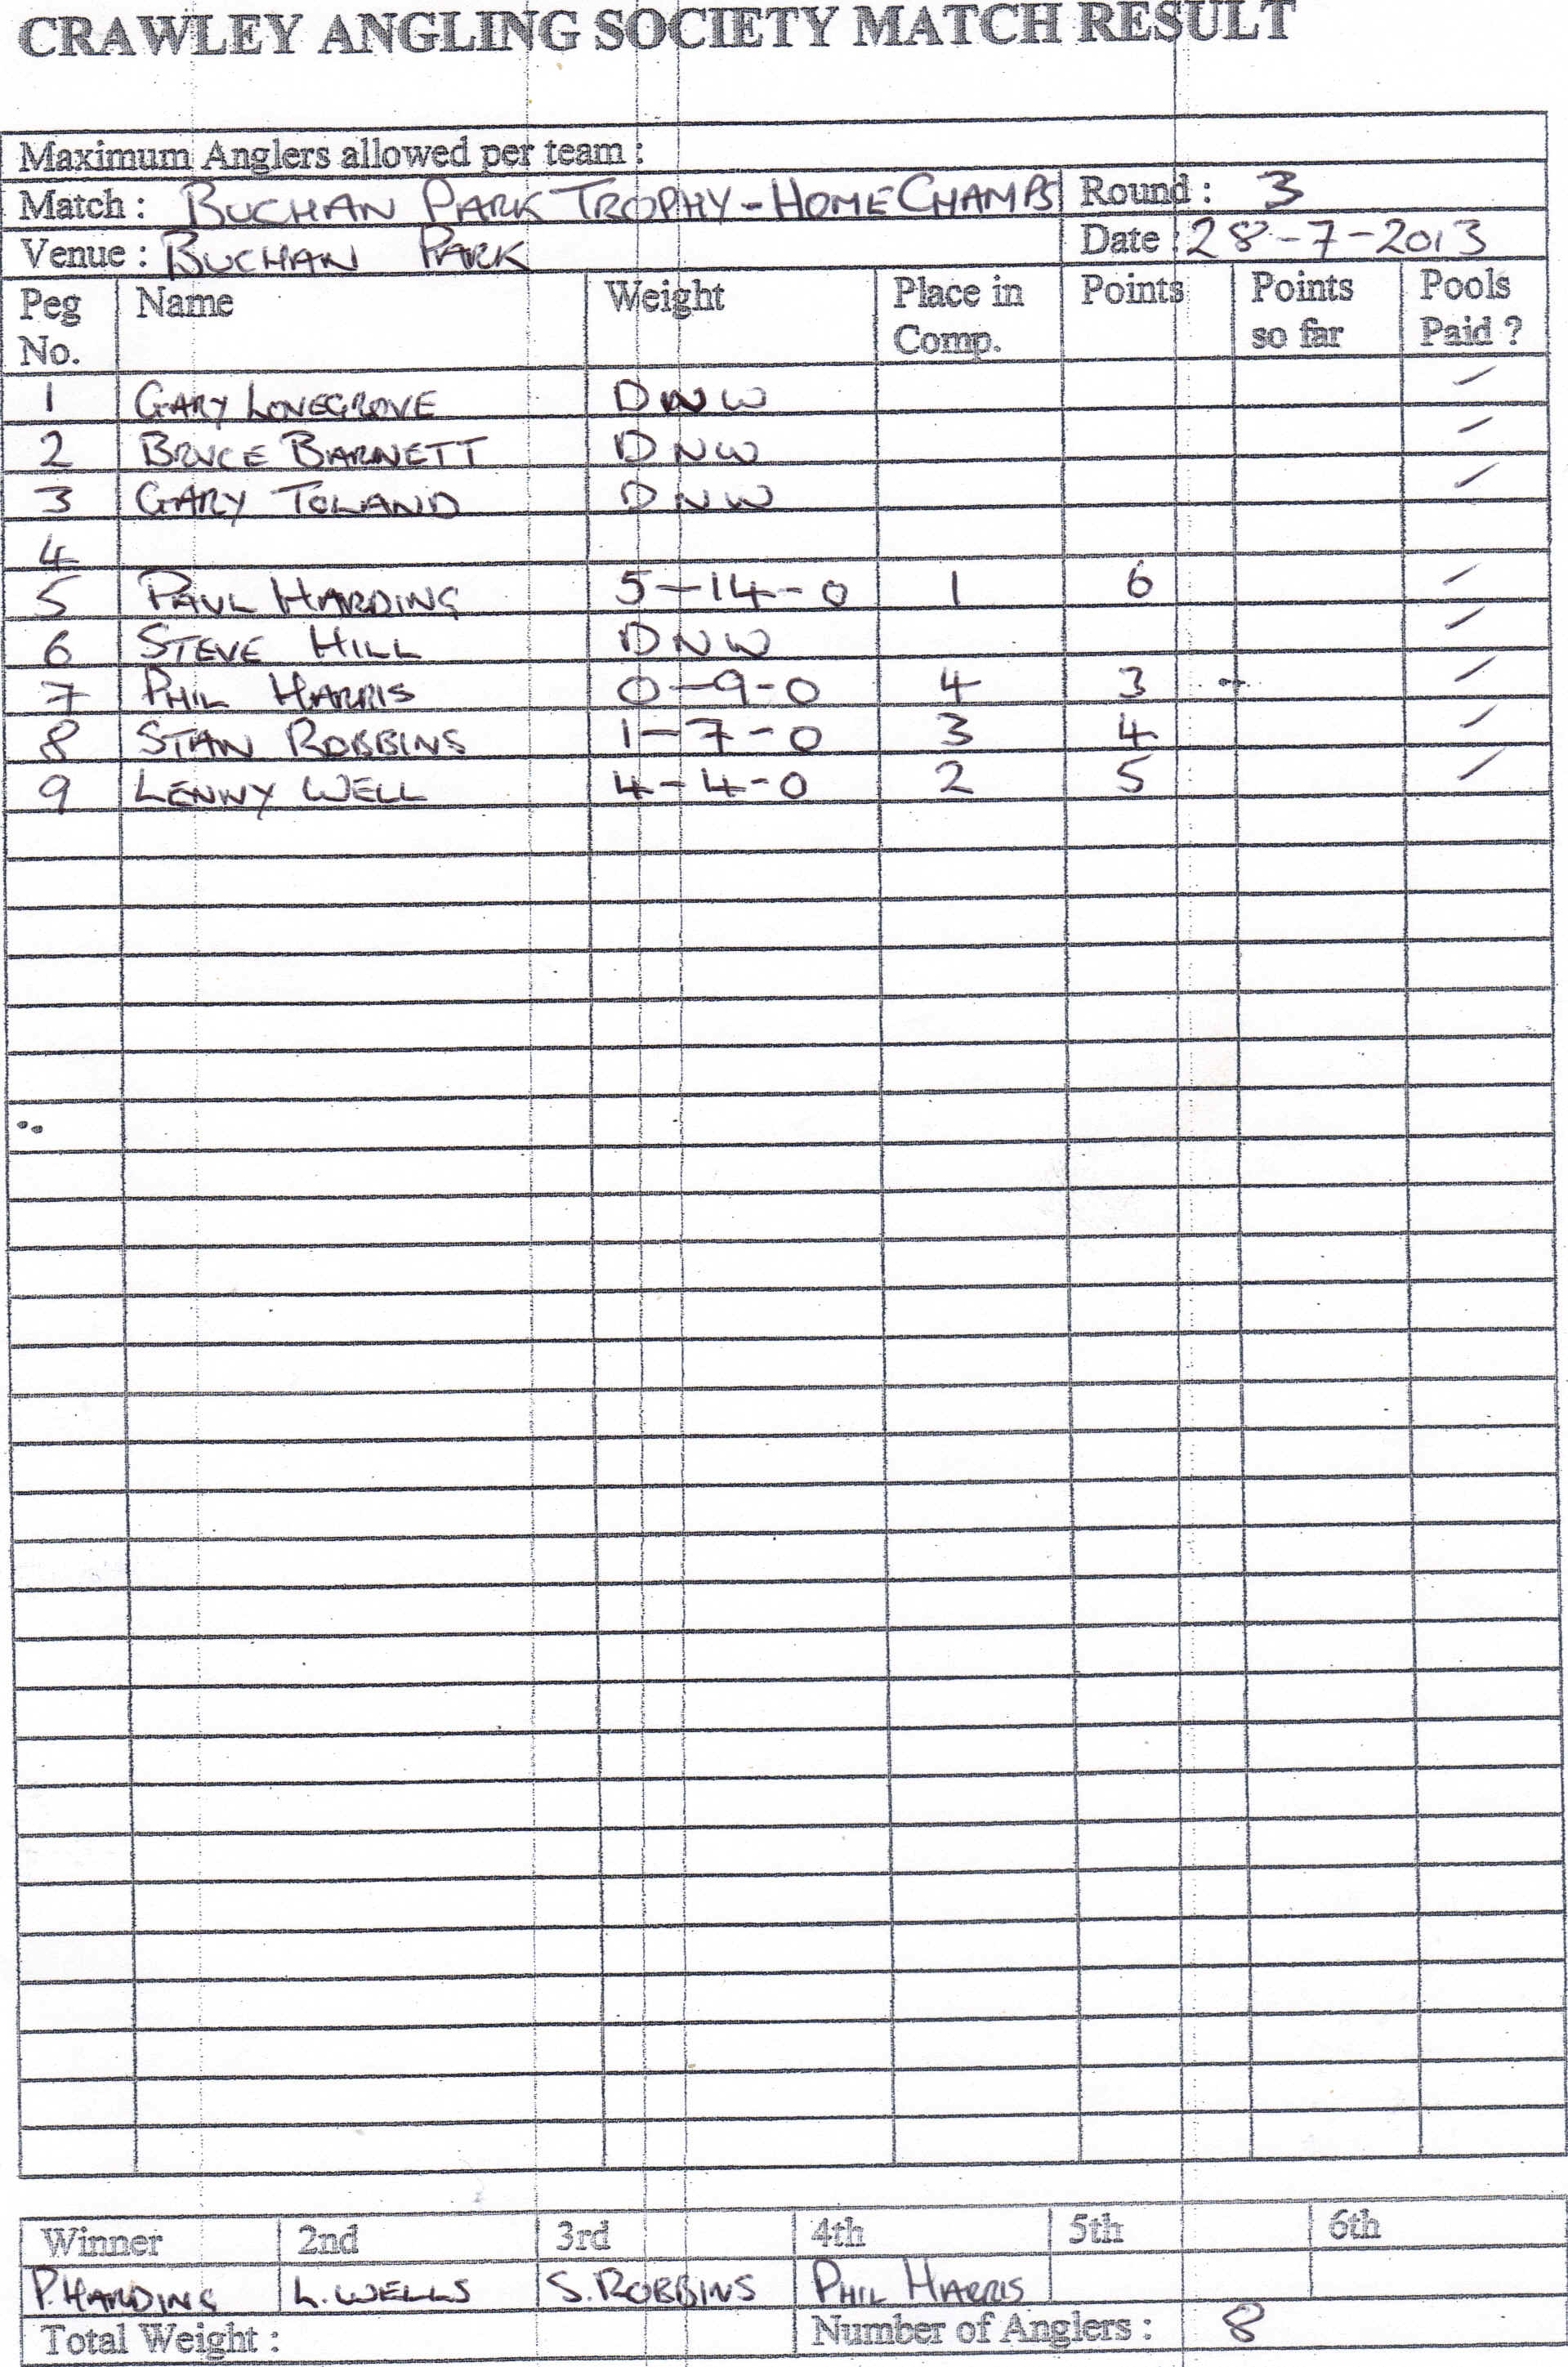 CRAWLEY ANGLING SOCIETY MATCH RESULT
Maximum Anglers allowed per team :
Match : BUCHAN PARK TROPHY - HOME CHAMPS Round : 3
Venue : BUCHAN PARK Date : 28-7-2013
Peg No. Name Weight Place in Comp. Points Points so far Pools Paid ?
1 GARY LOVEGROVE DNW ✓
2 BRUCE BARNETT DNW ✓
3 GARY TOLAND DNW ✓
4
5 PAUL HARDING 5-14-0 1 6 ✓
6 STEVE HILL DNW ✓
7 PHIL HARRIS 0-9-0 4 3 ✓
8 STAN ROBBINS 1-7-0 3 4 ✓
9 LENNY WELL 4-4-0 2 5 ✓
Winner 2nd 3rd 4th 5th 6th
P. HARDING L. WELLS S. ROBBINS PHIL HARRIS
Total Weight : Number of Anglers : 8